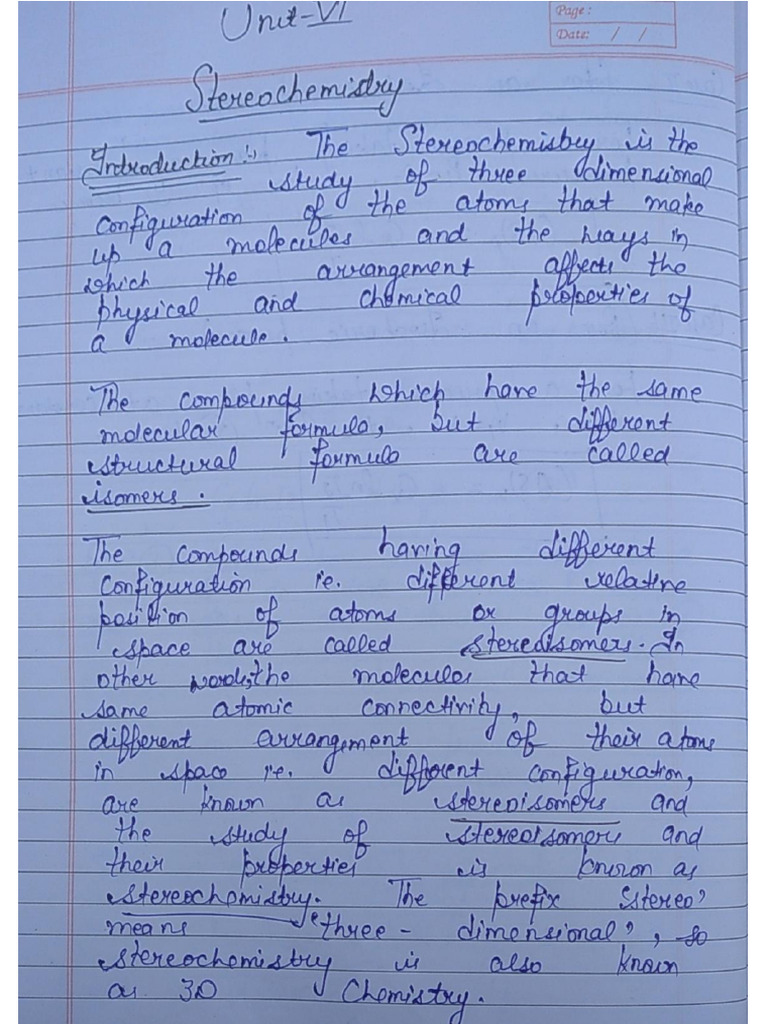 Unit-VI
Page:
Date: / /
Stereochemistry
Introduction :- The Stereochemistry is the
study of three dimensional
configuration of the atoms that make
up a molecules and the ways in
which the arrangement affects the
physical and chemical properties of
a molecule.
The compounds which have the same
molecular formula, but different
structural formula are called
isomers.
The compounds having different
configuration i.e. different relative
position of atoms or groups in
space are called stereoisomers. In
other words, the molecules that have
same atomic connectivity, but
different arrangement of their atoms
in space i.e. different configuration,
are known as stereoisomers and
the study of stereoisomers and
their properties is known as
stereochemistry. The prefix 'Stereo'
means 'three-dimensional', so
stereochemistry is also known
as 3D Chemistry.